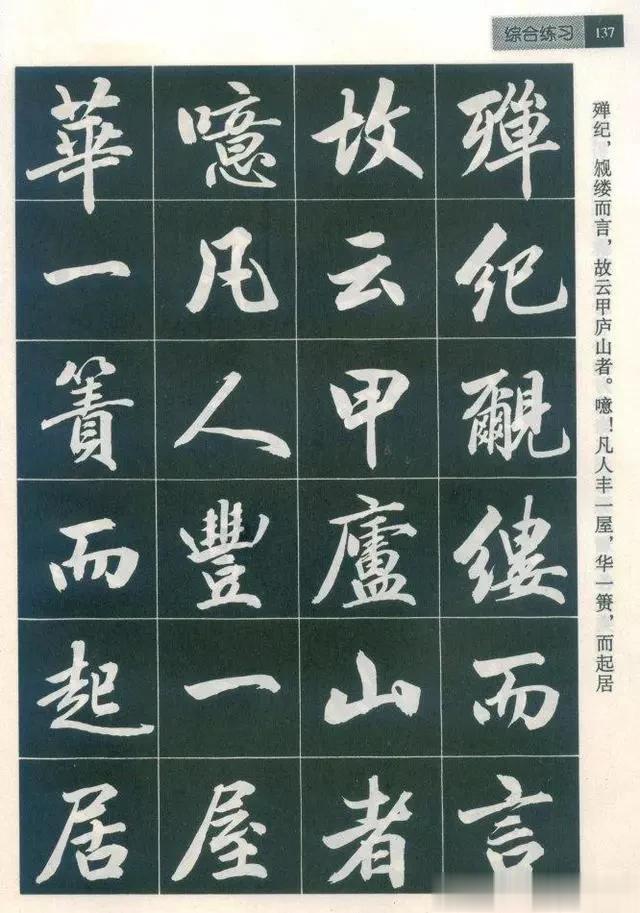 综合练习 137
殚纪，觙缕而言，故云甲庐山者。噫！凡人丰一屋，华一箦，而起居
殫紀覼縷而言
故云甲廬山者
噫凡人豐一屋
華一簀而起居